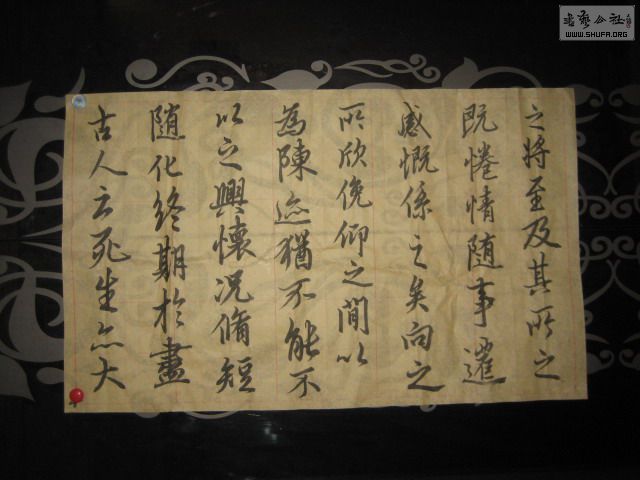 之將至及其所之
既惓情随事遷
感慨係之矣向之
所欣俛仰之間以
為陳迹猶不能不
以之興懷况脩短
随化終期於盡
古人云死生亦大
书艺公社
WWW.SHUFA.ORG